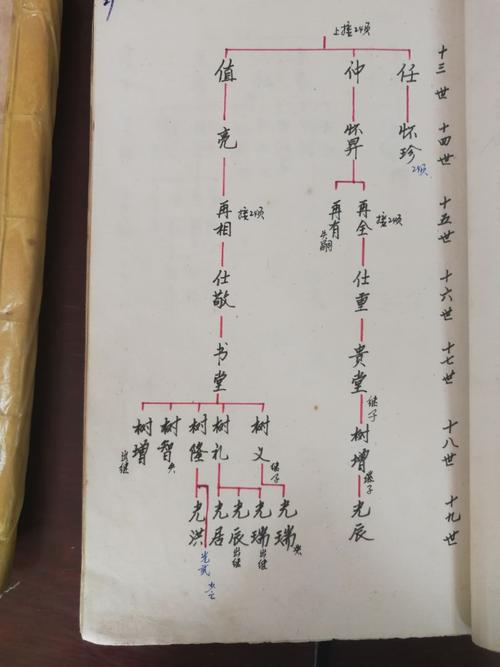 上接24页
任 仲 值
十三世
怀珍 怀昇 亮
24页
十四世
再全 再有 再相
接24页 失嗣 接24页
十五世
仕重 仕敬
十六世
贵堂 书堂
十七世
继子
树增 树义 树礼 树隆 树智 树增
继子 继子 失 出继
十八世
光辰 光瑞 光瑞 光辰 光居 光洪
失 出继 出继
光武
十九世